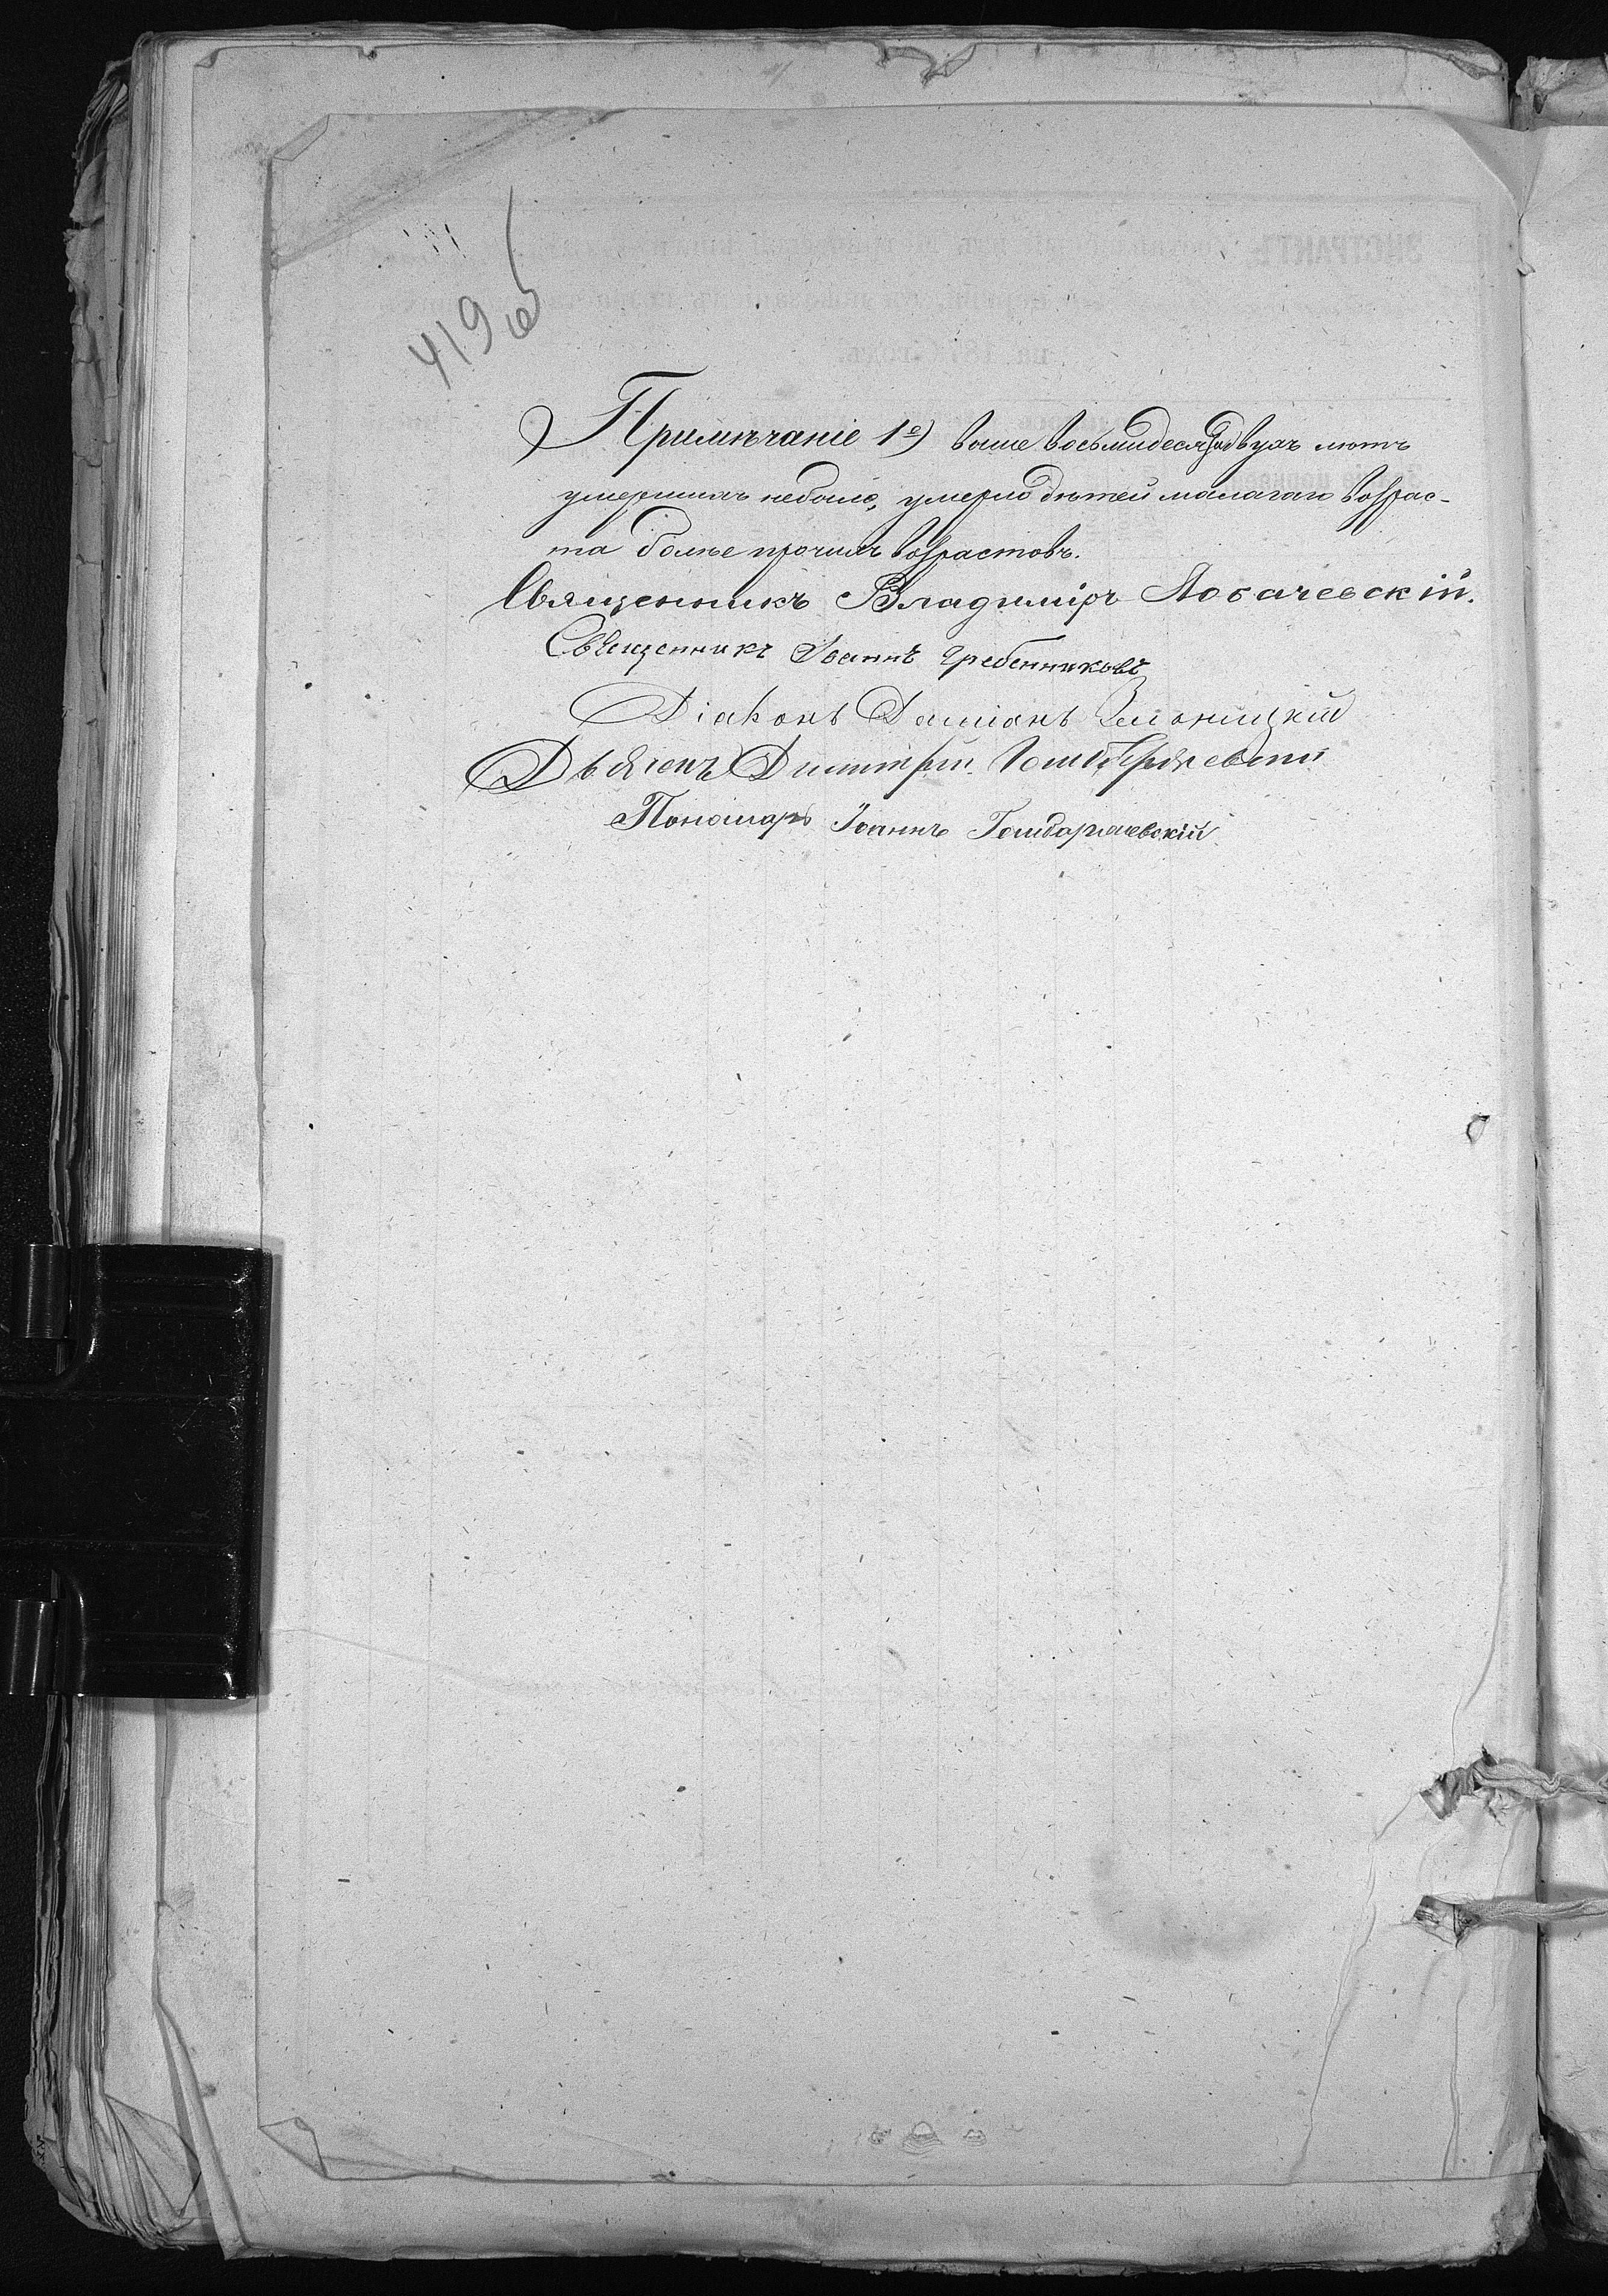 419 об
Примѣчаніе 1е) выше восьмидесяти двухъ лѣтъ
умершихъ небыло, умерло дѣтей малаго возрас-
та болѣе прочихъ возрастовъ.
Священникъ Владиміръ Лобачевскій.
Священникъ Іоаннъ Гребенниковъ
Діаконъ Даміанъ
Дьячекъ Димитрій
Пономарь Іоаннъ Гомбаржевскій